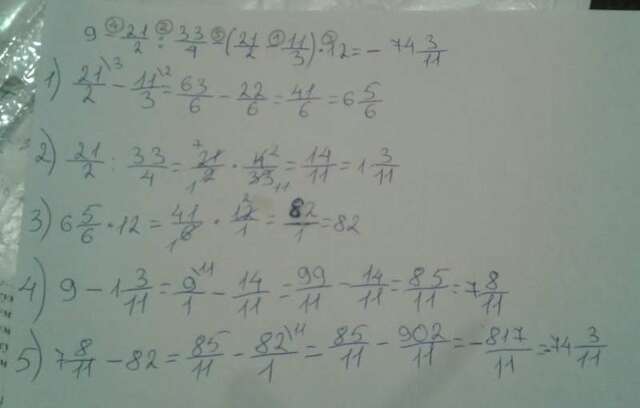 9 ④- 21/2 ②: 33/4 ⑤- (21/2 ①- 11/3) ③· 12 = - 74 3/11
1) 21\3/2 - 11\2/3 = 63/6 - 22/6 = 41/6 = 6 5/6
2) 21/2 : 33/4 = 21 7/2 1 · 4 2/33 11 = 14/11 = 1 3/11
3) 6 5/6 · 12 = 41/6 1 · 12 2/1 = 82/1 = 82
4) 9 - 1 3/11 = 9\11/1 - 14/11 = 99/11 - 14/11 = 85/11 = 7 8/11
5) 7 8/11 - 82 = 85/11 - 82\11/1 = 85/11 - 902/11 = - 817/11 = -74 3/11